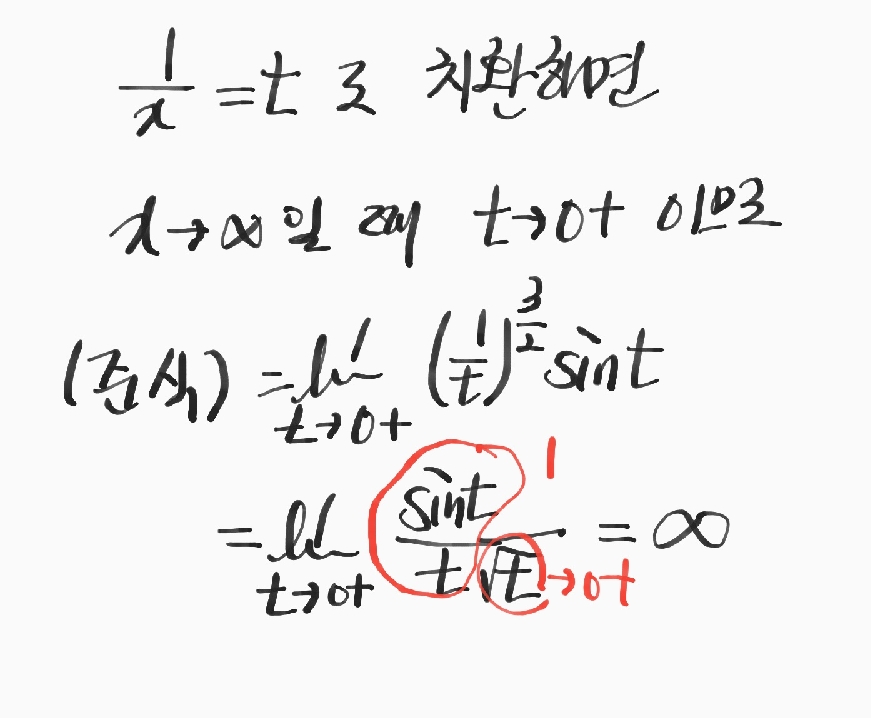 1/x = t 로 치환하면
x→∞일 때 t→0+ 이므로
(준식) = lim_{t→0+} (1/t)^{3/2} sint
= lim_{t→0+} sint/(t√t) = ∞
1
→0+